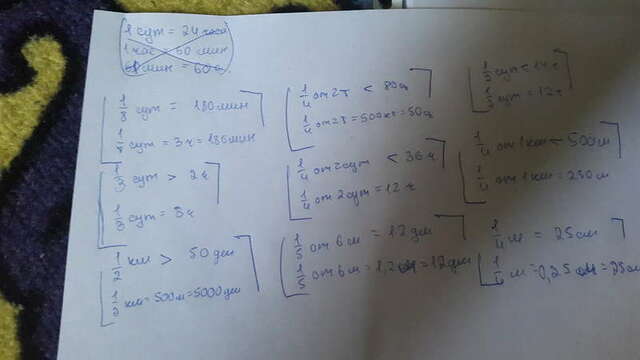 1 сут = 24 часа
1 час = 60 мин
1 мин = 60 с
1/8 сут = 180 мин
1/8 сут = 3ч = 180 мин
1/8 сут > 2ч
1/8 сут = 3ч
1/2 км > 50 дм
1/2 км = 500м = 5000 дм
1/4 от 2т < 80ц
1/4 от 2т = 500кг = 50ц
1/4 от 2 сут < 36ч
1/4 от 2 сут = 12ч
1/5 от 6м = 12 дм
1/5 от 6м = 1,2 = 12 дм
сут < 14ч
сут = 12ч
1/4 от 1 км < 500м
1/4 от 1 км = 250м
1/4 м = 25 см
1/4 м = 0,25 = 25 см